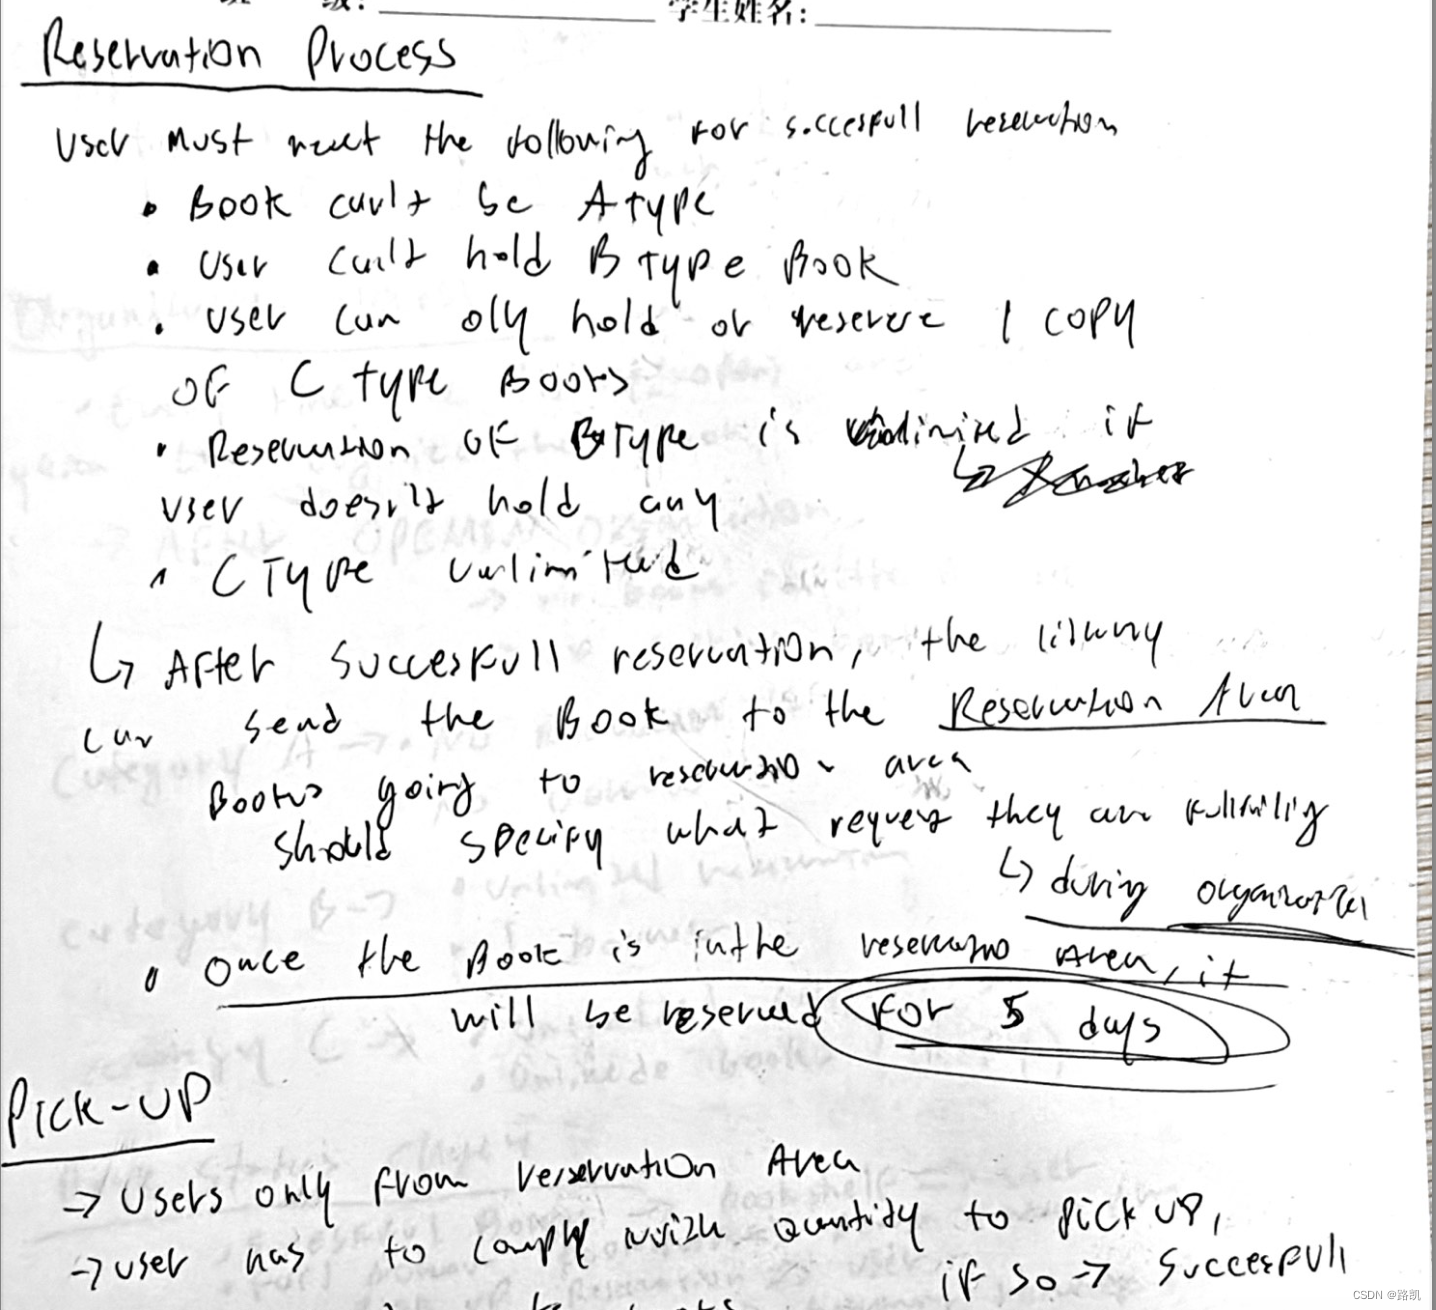 级: 学生姓名:
Reservation Process
User must meet the following for succesfull reservation
• Book can't be A type
• User can't hold B Type Book
• User can olly hold or reserve 1 copy
of C type Books
• Reservation of B Type is if
user doesn't hold any
• C Type unlimited
↳ After succesfull reservation, the library
can send the Book to the Reservation Area
Books going to reservation area
should specify what request they are fullfilling
↳ during
• Once the Book is in the reservatio Area, it
will be reserved for 5 days
Pick-UP
→ Users only from reservation Area
→ user has to comply with quantity to pick up,
if so → succesfull
CSDN @路凯